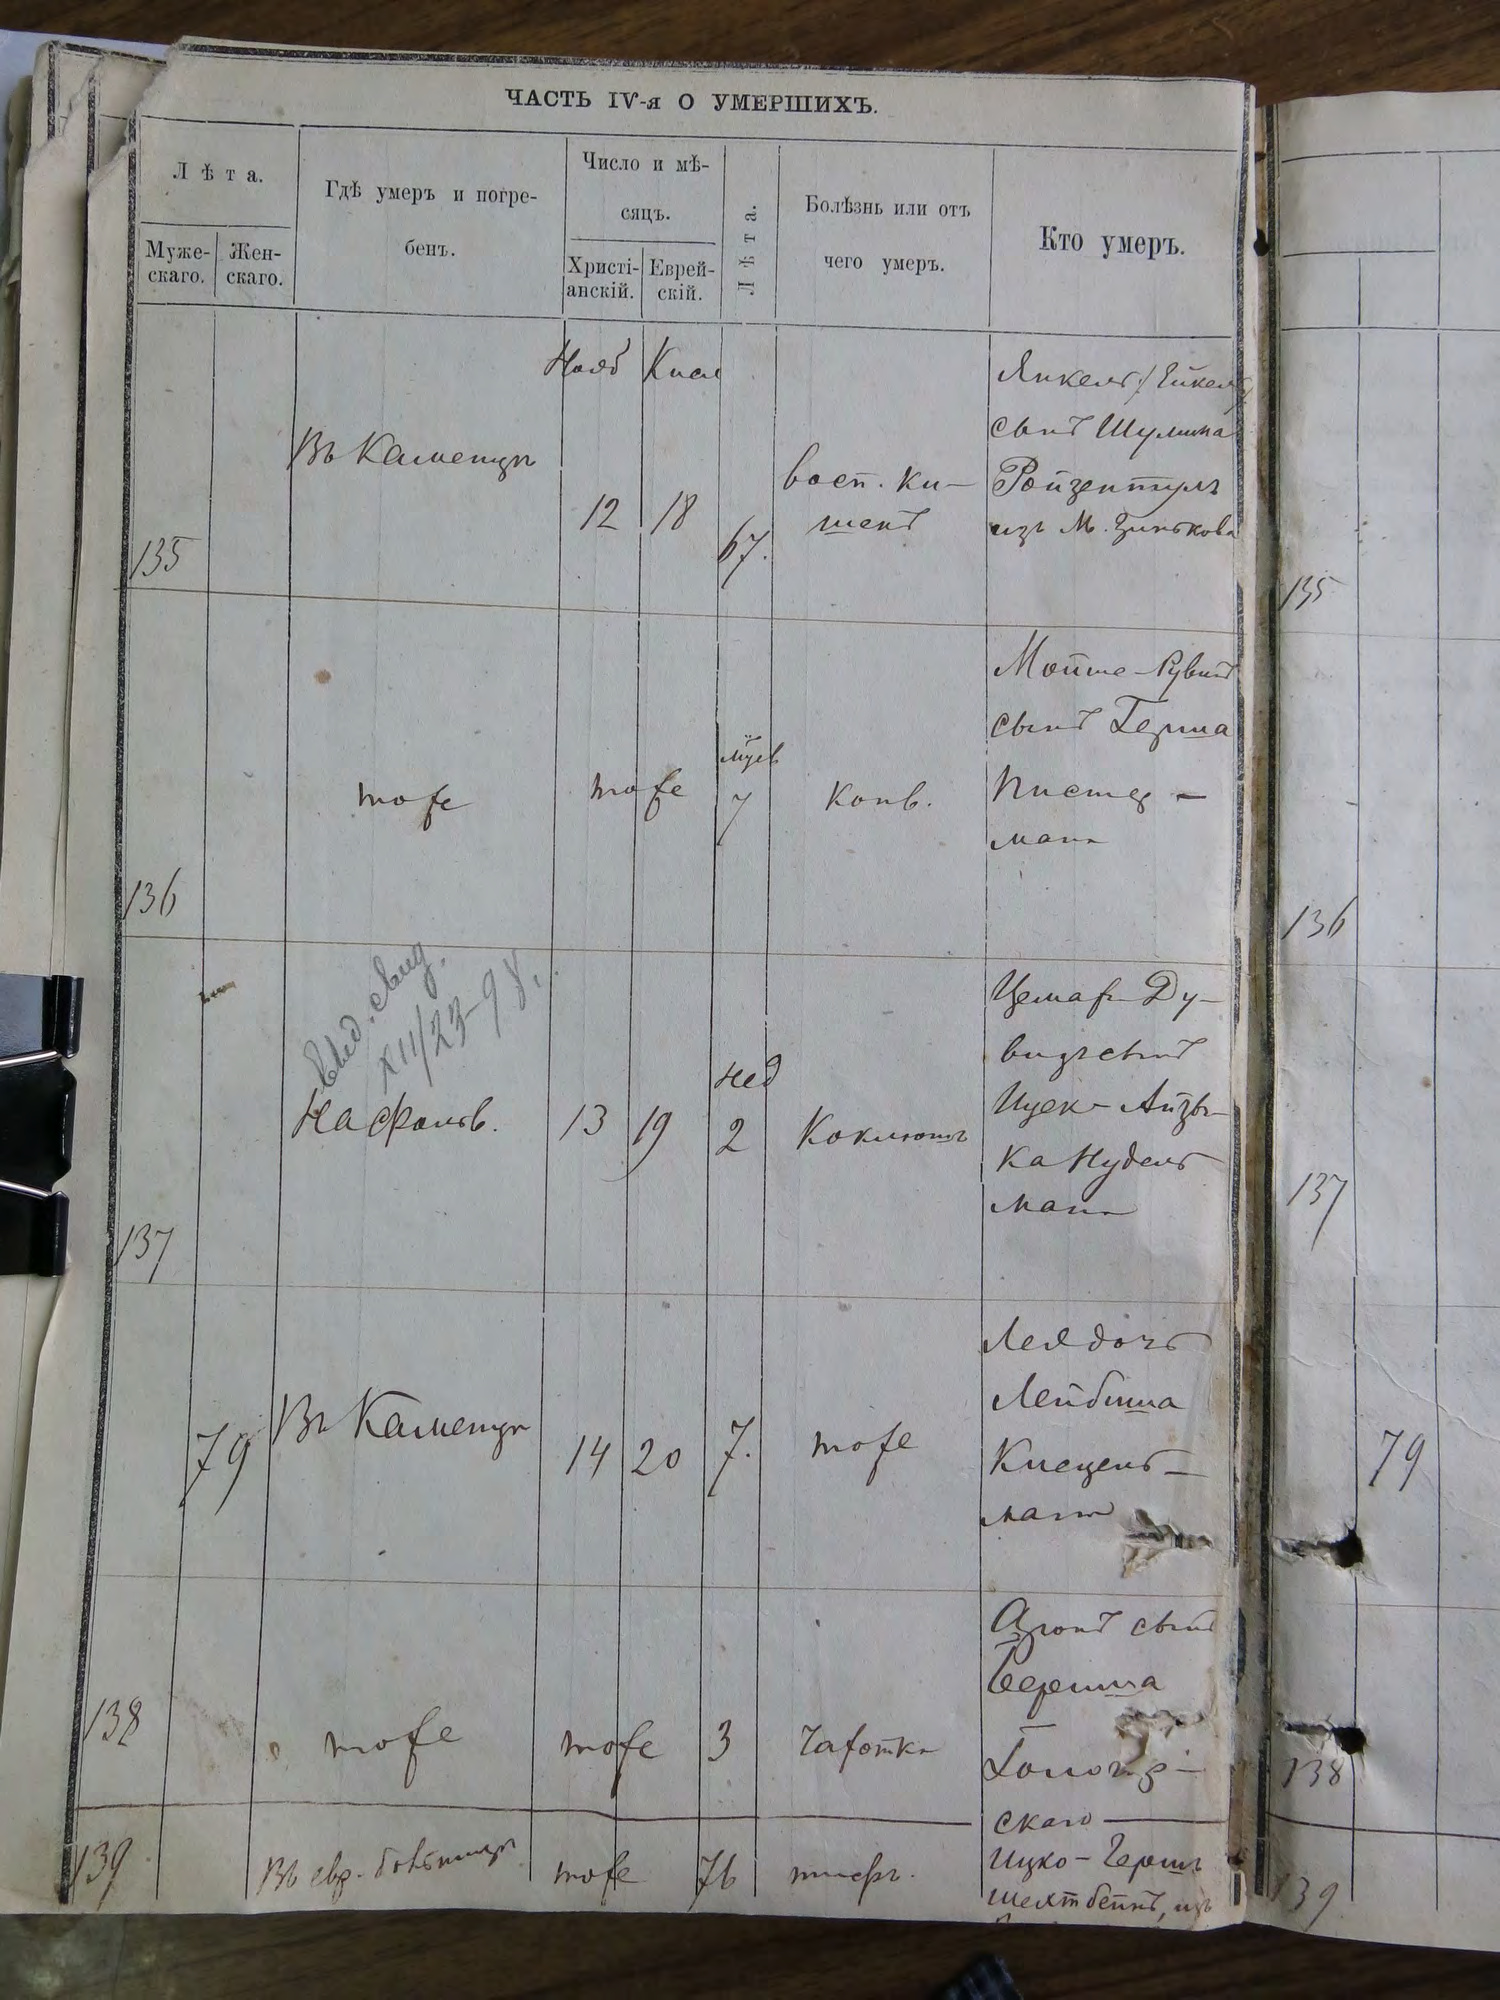 ЧАСТЬ IV-я О УМЕРШИХЪ.
Лѣта.
Муже-
скаго.
Жен-
скаго.
Гдѣ умеръ и погре-
бенъ.
Число и мѣ-
сяцъ.
Христі-
анскій.
Еврей-
скій.
Лѣта.
Болѣзнь или отъ
чего умеръ.
Кто умеръ.
135
Въ Каменцѣ
Нояб
12
Кисл
18
67.
восп. ки-
шекъ
Янкель (Ейкель)
сынъ Шулима
Ройзентуль
изъ м. Зинькова
135
136
тоже
тоже
7
Конв.
Мойше-Рувинъ
сынъ Герша
ман
136
137
Вид. свид.
XII/23-98.
На Фольв.
13
19
нед
2
Коклюшъ
Цемах-Ду-
видъ сынъ
Ицек-Айзы-
ка Нудель
ман
137
79
Въ Каменцѣ
14
20
7.
тоже
Лея дочь
Лейбиша
мант
79
138
тоже
тоже
3
Чахотка
Аронъ сынъ
Берша
скаго
138
139
Въ евр. больницѣ
тоже
76
тифъ.
Ицко-Гершъ
Шехтбейнъ, изъ
139